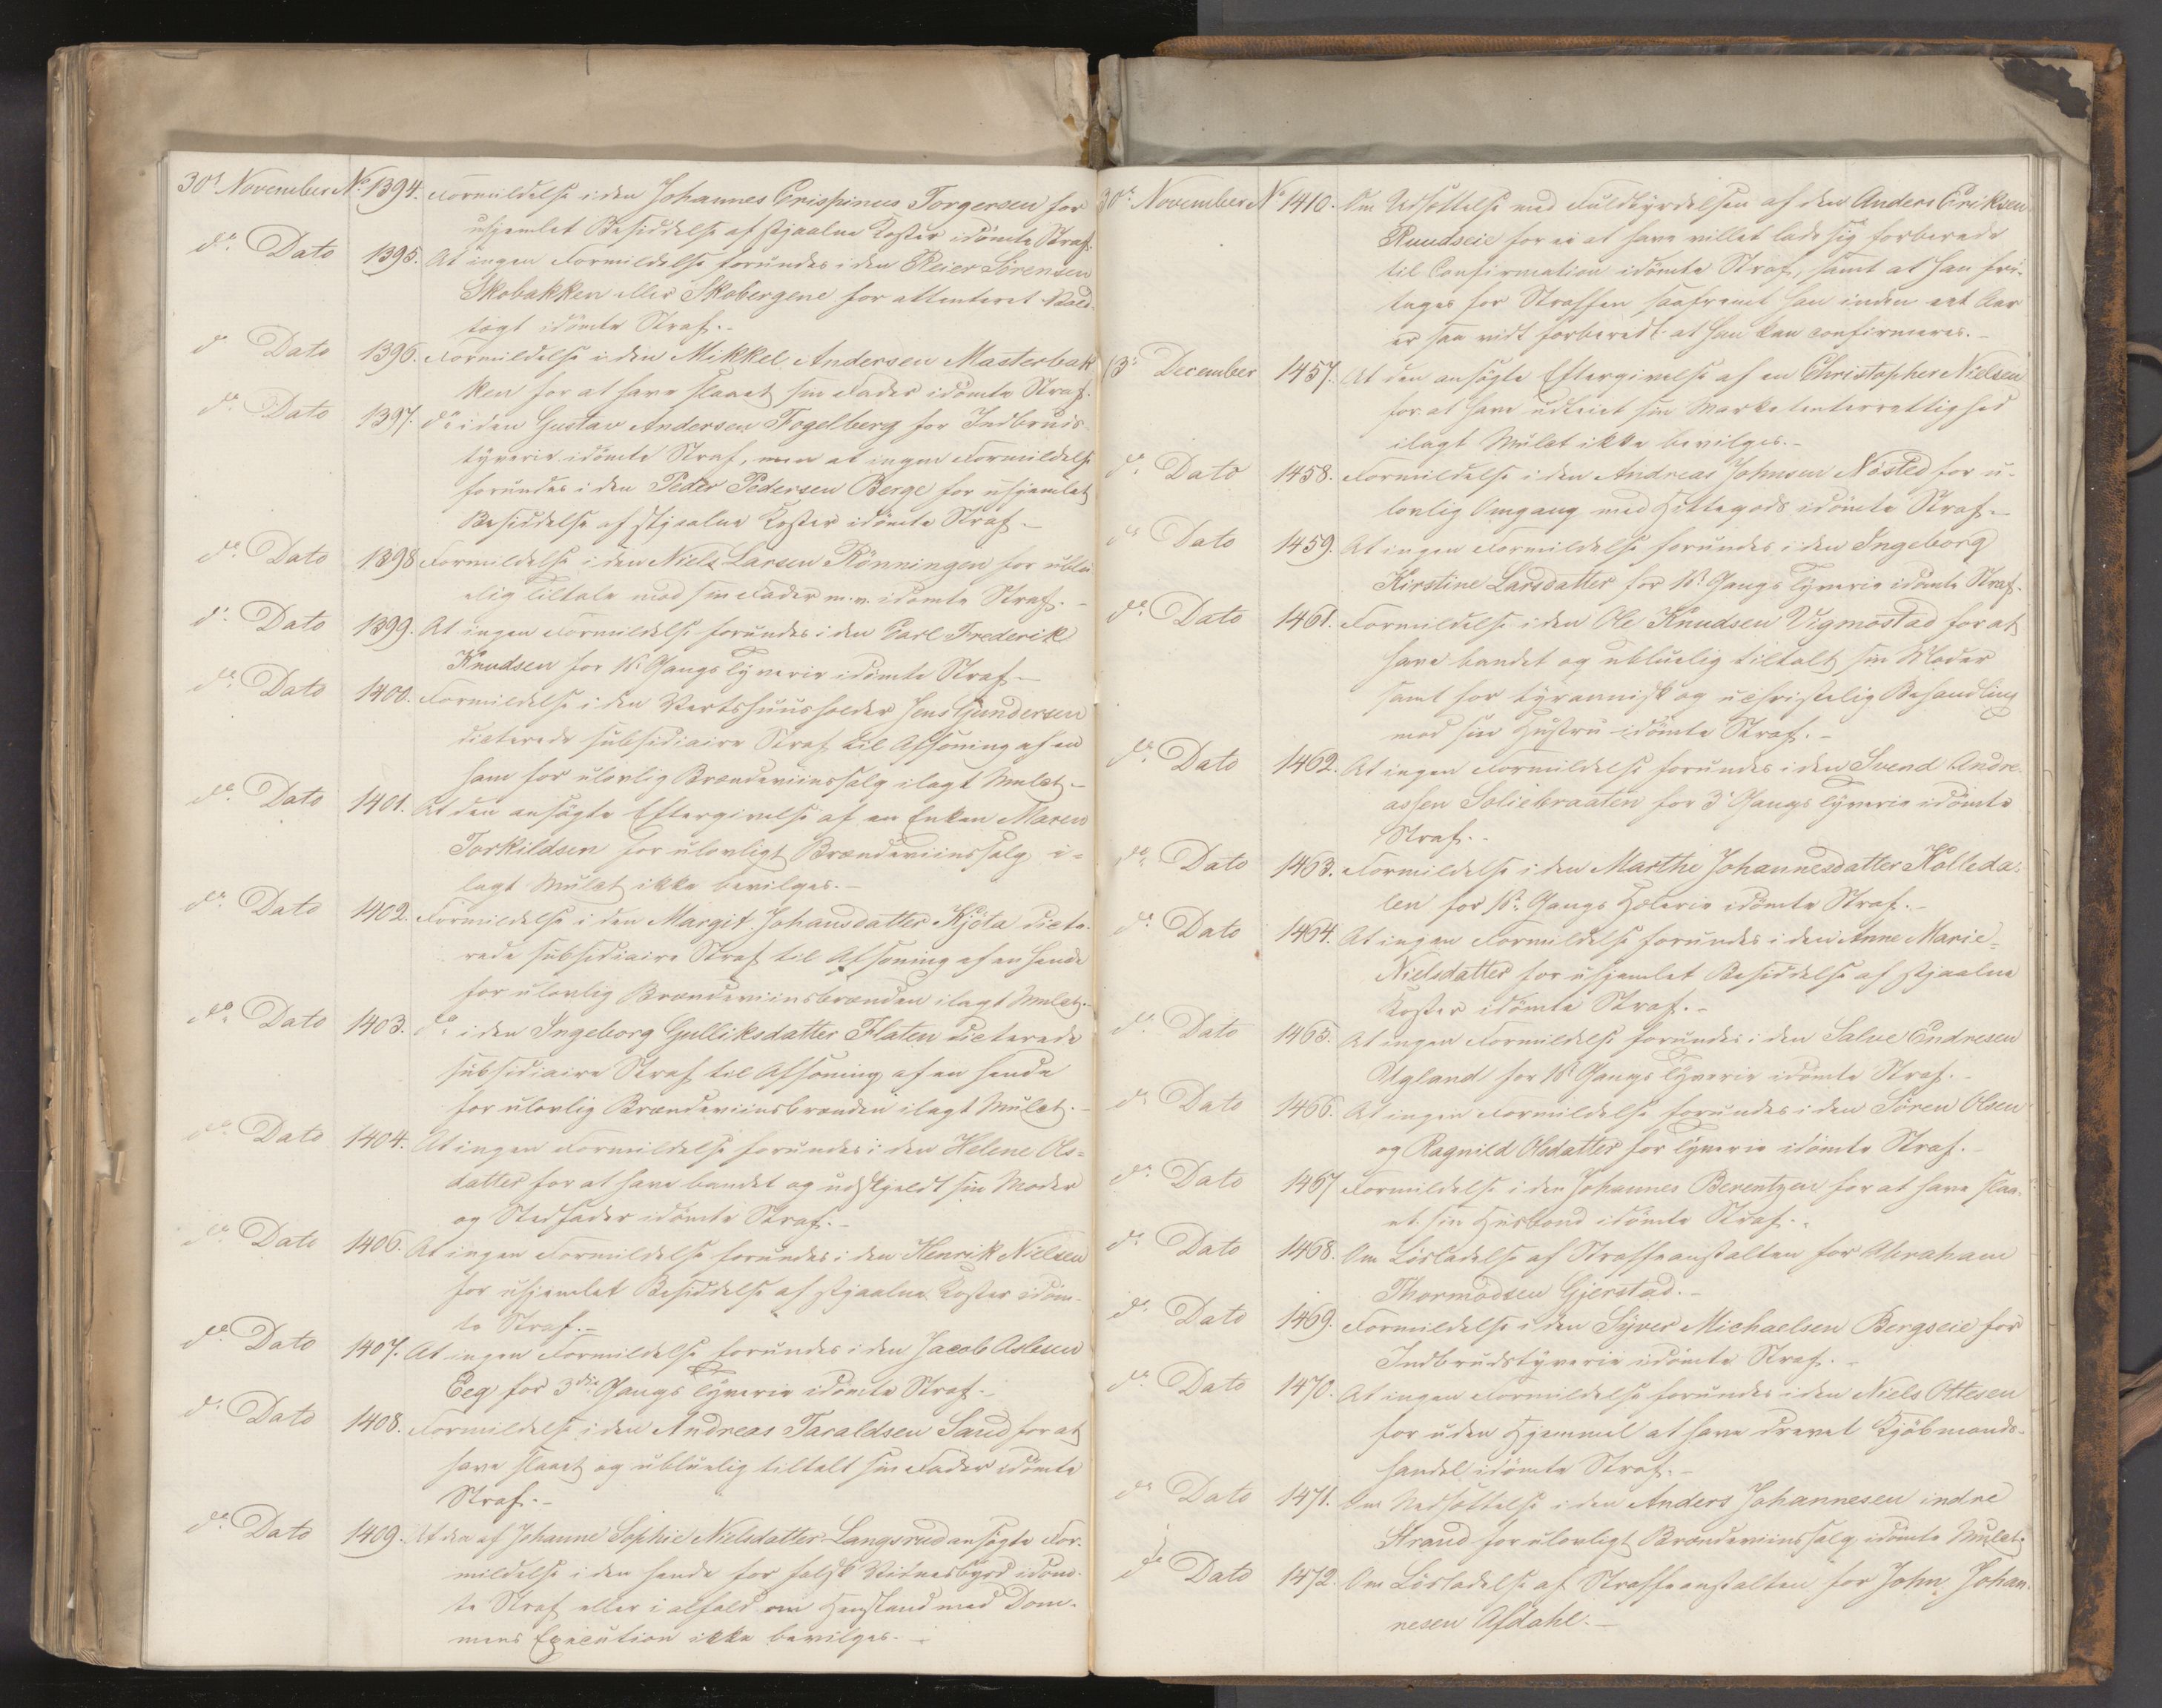 30t November No 1394. Formildelse i den Johannes Crispinus Torgersen for
uhjemlet Besiddelse af stjaalne Koster idömte Straf.
do Dato 1395. At ingen Formildelse forundes i den Reier Sörensen
Skobakken eller Skobergene for attenteret Vold-
tægt idömte Straf.-
do Dato 1396. Formildelse i den Mikkel Andersen Masterbak
ken for at have slaaet sin Fader idömte Straf.
do Dato 1397. do i den Gustav Andersen Fogelberg for Indbruds-
tÿverie idömte Straf, men at ingen Formildelse
forundes i den Peder Pedersen Berge for uhjemlet
Besiddelse af stjaalne Koster idömte Straf.-
do Dato 1398 Formildelse i den Niels Larsen Rönningen for ublu-
elig Tiltale mod sin Fader m.v. idömte Straf.-
do Dato 1399. At ingen Formildelse forundes i den Carl Frederik
Knudsen for 1st Gangs Tyverie idömte Straf.-
do Dato 1400. Formildelse i den Vertshuusholder Jens Gundersen
dicterede subsidiaire Straf til Afsoning af en
ham for ulovlig Brændeviinssalg ilagt Mulct.-
do Dato 1401. At den ansögte Eftergivelse af en Enken Maren
Torkildsen for ulovligt Brændeviinssalg i-
lagt Mulct ikke bevilges.-
do Dato 1402. Formildelse i den Margit Johansdatter Kjöta dicte-
rede subsidiaire Straf til Afsoning af en hende
for ulovlig Brændeviinsbrænden ilagt Mulct.-
do Dato 1403. do i den Ingeborg Gulliksdatter Flaten dicterede
subsidiaire Straf til Afsoning af en hende
for ulovlig Brændeviinsbrænden ilagt Mulct.-
do Dato 1404. At ingen Formildelse forundes i den Helene Ols-
datter for at have bandet og udskjeldt sin Moder
og Stedfader idömte Straf.-
do Dato 1406. At ingen Formildelse forundes i den Henrik Nielsen
for uhjemlet Besiddelse af stjaalne Koster idöm-
te Straf.-
do Dato 1407. At ingen Formildelse forundes i den Jacob Aslesen
Eeg for 3die Gangs Tyverie idömte Straf.-
do Dato 1408. Formildelse i den Andreas Taraldsen Sand for at
have slaaet og ubluelig tiltalt sin Fader idömte
Straf.-
do Dato 1409. At den af Johanne Sophie Nielsdatter Langsrud ansögte For-
mildelse i den hende for falsk Vidnesbyrd idöm-
te Straf eller i alfald om Henstand med Dom-
mens Execution ikke bevilges.-
30te November No 1410. Om Udsættelse med Fuldbyrdelsen af den Anders Eriksen
Ruudseie for ei at have villet lade sig forberede
til Confirmation idömte Straf, samt at han fri-
tages for Straffen saafremt han inden eet Aar
er saa vidt forberedt at han kan confirmeres.-
13de December 1457. At den ansögte Eftergivelse af en Christopher Nielsen
for at have udleiet sin Marketenterrettighed
ilagt Mulct ikke bevilges.-
do Dato 1458. Formildelse i den Andreas Johnsen Nösted for u-
lovlig Omgang med Hittegods idömte Straf.-
do Dato 1459. At ingen Formildelse forundes i den Ingeborg
Kirstine Larsdatter for 1st Gangs Tyverie idömte Straf.
do Dato 1461. Formildelse i den Ole Knudsen Vigmostad for at
have bandet og ubluelig tiltalt sin Moder
samt for tyrannisk og uchristelig Behandling
mod sin Hustru idömte Straf.-
do Dato 1462. At ingen Formildelse forundes i den Svend Andre-
assen Soliebraaten for 3d Gangs Tyverie idömte
Straf.-
do Dato 1463. Formildelse i den Marthe Johannesdatter Kolleda-
len for 1st Gangs Hælerie idömte Straf.-
do Dato 1464. At ingen Formildelse forundes i den Anne Marie-
Nielsdatter for uhjemlet Besiddelse af stjaalne
Koster idömte Straf.-
do Dato 1465. At ingen Formildelse forundes i den Salve Endresen
Ugland for 1st Gangs Tyverie idömte Straf.-
do Dato 1466. At ingen Formildelse forundes i den Sören Olsen
og Ragnild Olsdatter for Tyverie idömte Straf.-
do Dato 1467 Formildelse i den Johannes Berentzen for at have slaa-
et sin Husbond idömte Straf.-
do Dato 1468. Om Lösladelse af Straffeanstalten for Abraham
Thormodsen Gjerstad.-
do Dato 1469. Formildelse i den Syver Michaelsen Bergseie for
Indbrudstyverie idömte Straf.-
do Dato 1470. At ingen Formildelse forundes i den Niels Ottesen
for uden Hjemmel at have drevet Kjöbmands-
handel idömte Straf.-
do Dato 1471. Om Nedsættelse i den Anders Johannesen indre
Strand for ulovligt Brændeviinssalg idömte Mulct.
do Dato 1472. Om Lösladelse af Straffeanstalten for John Johan-
nesen Afdahl.-